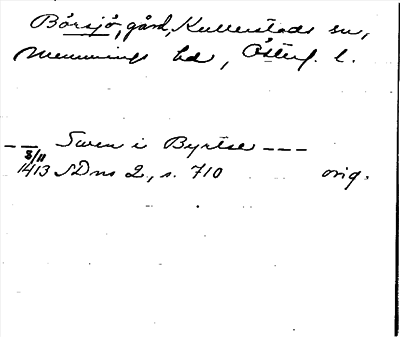 Börsjö, gård, Kullerstads sn,
Memmings hd, Österg. l.
— — Swen i Byrtse — — —
3/11
1413 SD ns 2, s. 710 orig.